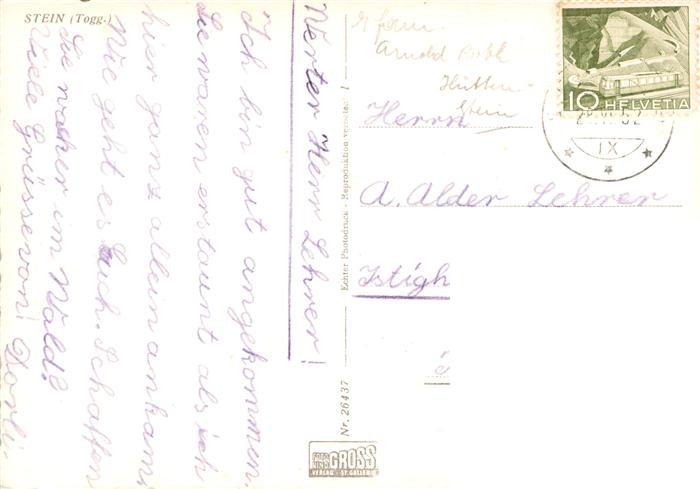 STEIN (Togg.)
Werter Herr Lehrer!
Ich bin gut angekommen.
Sie waren erstaunt als ich
hier ganz allein ankam,
Wie geht es Euch. Schaffen
Sie nacher im Wald?
Viele Grüsse von! Dorli
Nr. 26437
Echter Photodruck - Reproduktion verboten!
FOTO UND GROSS
VERLAG ST. GALLEN
Arnold
Hütten
Stein
Herrn
A. Alder Lehrer
Istigh
10 HELVETIA
52
IX